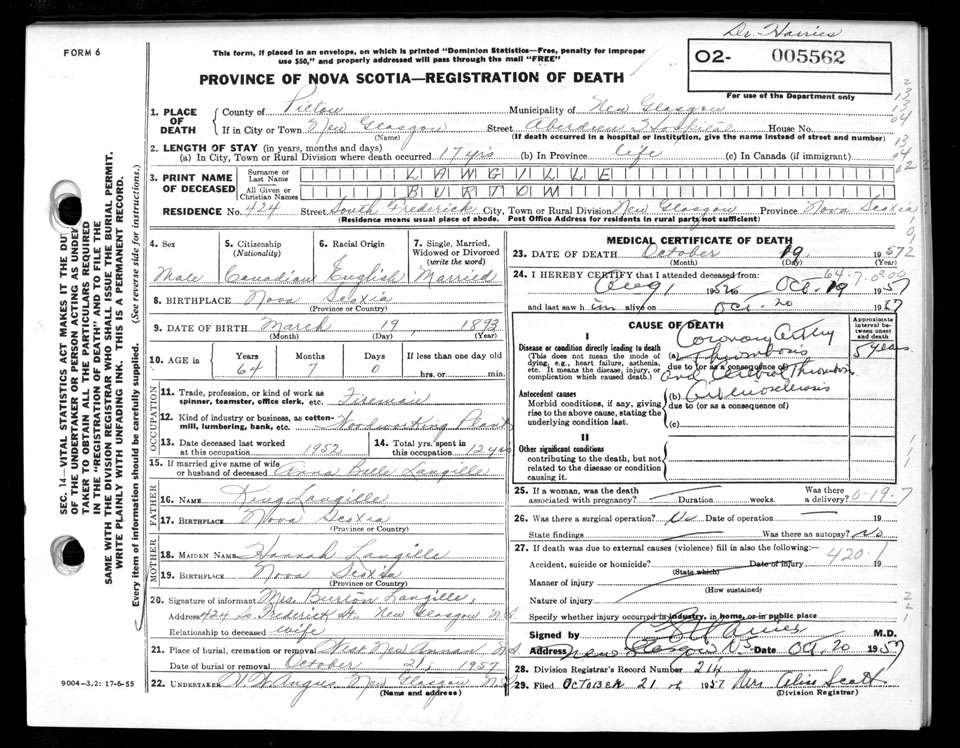 Dr. Harries
FORM 6
This form, if placed in an envelope, on which is printed "Dominion Statistics—Free, penalty for improper
use $50," and properly addressed will pass through the mail "FREE"
02- 005562
For use of the Department only
PROVINCE OF NOVA SCOTIA—REGISTRATION OF DEATH
SEC. 14—VITAL STATISTICS ACT MAKES IT THE DUTY
OF THE UNDERTAKER OR PERSON ACTING AS UNDER-
TAKER TO OBTAIN ALL THE PARTICULARS REQUIRED
IN THE "REGISTRATION OF DEATH" AND TO FILE THE
SAME WITH THE DIVISION REGISTRAR WHO SHALL ISSUE THE BURIAL PERMIT.
WRITE PLAINLY WITH UNFADING INK. THIS IS A PERMANENT RECORD.
Every item of information should be carefully supplied. (See reverse side for instructions.)
1. PLACE OF DEATH
County of Pictou Municipality of New Glasgow
If in City or Town New Glasgow Street Aberdeen Hospital House No.
(Name) (If death occurred in a hospital or institution, give the name instead of street and number)
2. LENGTH OF STAY (in years, months and days)
(a) In City, Town or Rural Division where death occurred 17 yrs (b) In Province life (c) In Canada (if immigrant)
3. PRINT NAME OF DECEASED
Surname or Last Name LANGILLE
All Given or Christian Names BURTON
RESIDENCE No. 424 Street South Frederick City, Town or Rural Division New Glasgow Province Nova Scotia
(Residence means usual place of abode. Post Office Address for residents in rural parts not sufficient)
4. Sex
Male
5. Citizenship
(Nationality)
Canadian
6. Racial Origin
English
7. Single, Married,
Widowed or Divorced
(write the word)
Married
8. BIRTHPLACE Nova Scotia
(Province or Country)
9. DATE OF BIRTH March 19, 1893
(Month) (Day) (Year)
10. AGE in Years Months Days If less than one day old
64 7 0 hrs. or min.
OCCUPATION
11. Trade, profession, or kind of work as
spinner, teamster, office clerk, etc. Fireman
12. Kind of industry or business, as cotton-
mill, lumbering, bank, etc. Woodworking Plant
13. Date deceased last worked
at this occupation 1952
14. Total yrs. spent in
this occupation 12 yrs
15. If married give name of wife
or husband of deceased Anna Belle Langille
FATHER
16. NAME King Langille
17. BIRTHPLACE Nova Scotia
(Province or Country)
MOTHER
18. MAIDEN NAME Hannah Langille
19. BIRTHPLACE Nova Scotia
(Province or Country)
20. Signature of informant Mrs. Burton Langille,
Address 424 So. Frederick St. New Glasgow N.S.
Relationship to deceased wife
21. Place of burial, cremation or removal West New Annan N.S.
Date of burial or removal October 21, 1957
22. UNDERTAKER H. W. Angus New Glasgow N.S.
(Name and address)
9004-3.2: 17-6-55
MEDICAL CERTIFICATE OF DEATH
23. DATE OF DEATH October 19, 1957
(Month) (Day) (Year)
64-7-0
24. I HEREBY CERTIFY that I attended deceased from:
Aug 1952 to Oct. 19 1957
and last saw him alive on Oct. 20 1957
CAUSE OF DEATH
Approximate interval between onset and death
I
Disease or condition directly leading to death
(This does not mean the mode of
dying, e.g., heart failure, asthenia,
etc. It means the disease, injury, or
complication which caused death.)
Coronary Artery
(a) Thrombosis
due to (or as a consequence of)
and Cerebral Thrombosis
5 years
Antecedent causes
Morbid conditions, if any, giving
rise to the above cause, stating the
underlying condition last.
(b) Arteriosclerosis
due to (or as a consequence of)
(c)
II
Other significant conditions
contributing to the death, but not
related to the disease or condition
causing it.
25. If a woman, was the death
associated with pregnancy? Duration weeks. Was there
a delivery?
0-19-7
26. Was there a surgical operation? No Date of operation 19
State findings Was there an autopsy? No
27. If death was due to external causes (violence) fill in also the following:—
420.1
Accident, suicide or homicide? Date of injury 19
(State which)
Manner of injury
(How sustained)
Nature of injury
Specify whether injury occurred in industry, in home, or in public place
Signed by Harries M.D.
Address New Glasgow NS Date Oct. 20 1957
28. Division Registrar's Record Number 214
29. Filed OCTOBER 21 1957 Mrs Alice Scott
(Division Registrar)